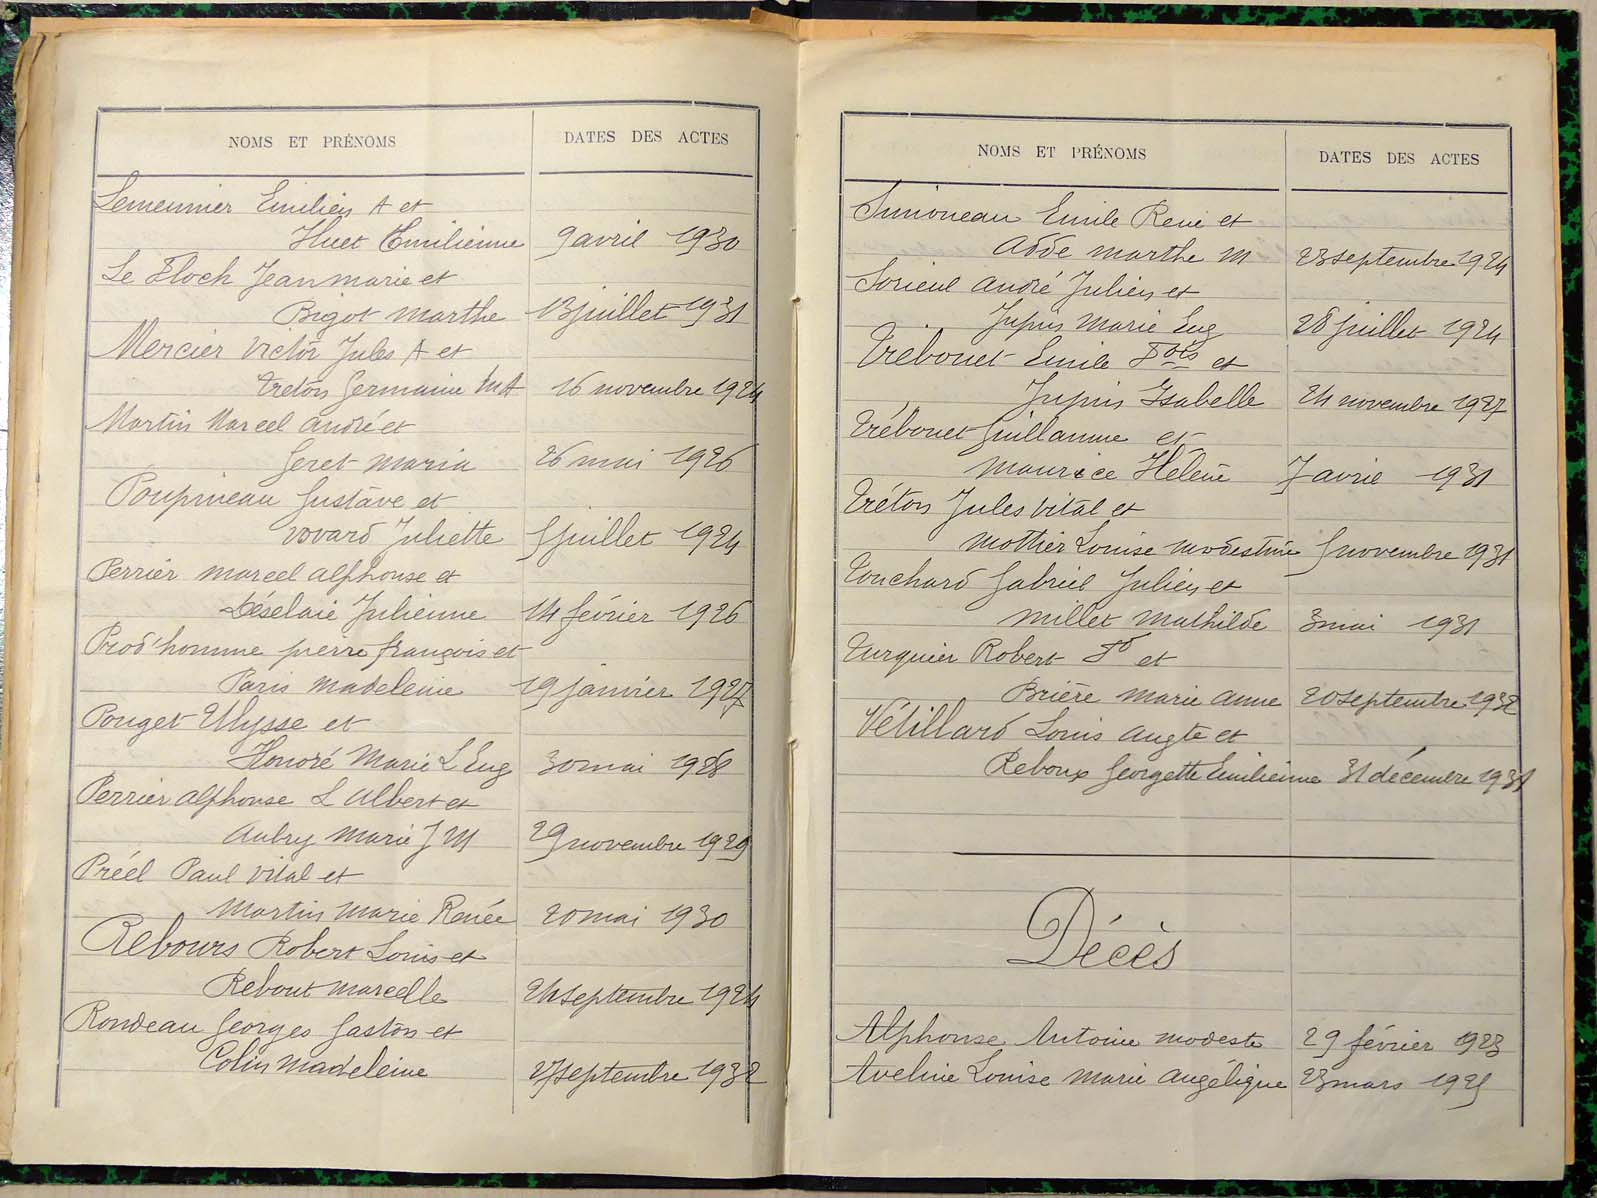 NOMS ET PRÉNOMS DATES DES ACTES
Lemeunier Emilien A et
Huet Emilienne 9 avril 1930
Le Floch Jean marie et
Bigot marthe 13 juillet 1931
Mercier Victor Jules A et
Treton Germaine M A 16 novembre 1924
Martin Marcel andré et
Geret maria 26 mai 1926
Poupineau Gustave et
Vovard Juliette 5 juillet 1924
Perrier marcel alphonse et
Déselaie Julienne 14 février 1926
Prod'homme pierre françois et
Paris madeleine 19 janvier 1927
Pouget Ulysse et
Honoré Marie L Eug 30 mai 1928
Perrier alphonse L albert et
Aubry Marie J M 29 novembre 1929
Préel Paul vital et
Martin Marie Renée 20 mai 1930
Rebours Robert Louis et
Rebout marcelle 24 septembre 1924
Rondeau Georges Gaston et
Colin madeleine 27 septembre 1932
NOMS ET PRÉNOMS DATES DES ACTES
Simoneau Emile René et
Adde marthe M 23 septembre 1924
Sorieul andré Julien et
Jupin Marie Eug 28 juillet 1924
Trébouet Emile Fois et
Jupin Isabelle 24 novembre 1927
Trébouet Guillaume et
Maurice Hélène 7 avril 1931
Tréton Jules vital et
Mottier Louise modestine 5 novembre 1931
Touchard Gabriel Julien et
millet mathilde 3 mai 1931
Turquier Robert Fd et
Brière marie anne 20 septembre 1932
Vétillard Louis augte et
Reboux Georgette Emilienne 31 décembre 1931
Décès
Alphonse Antoine modeste 29 février 1923
Aveline Louise Marie angélique 23 mars 1925